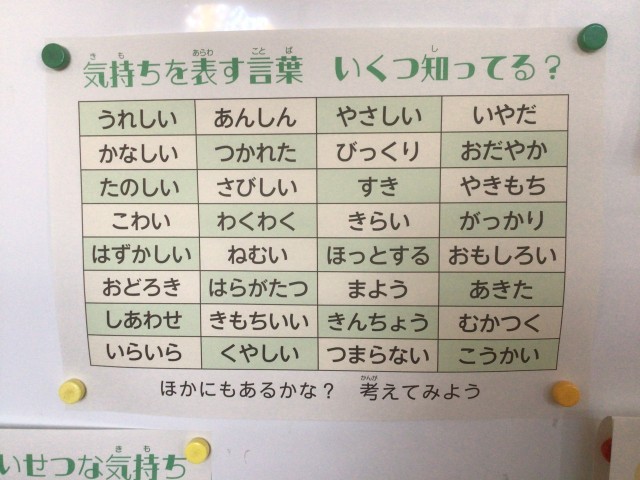 気持ちを表す言葉　いくつ知ってる？
うれしい　あんしん　やさしい　いやだ
かなしい　つかれた　びっくり　おだやか
たのしい　さびしい　すき　やきもち
こわい　わくわく　きらい　がっかり
はずかしい　ねむい　ほっとする　おもしろい
おどろき　はらがたつ　まよう　あきた
しあわせ　きもちいい　きんちょう　むかつく
いらいら　くやしい　つまらない　こうかい
ほかにもあるかな？　考えてみよう
いせつな気持ち